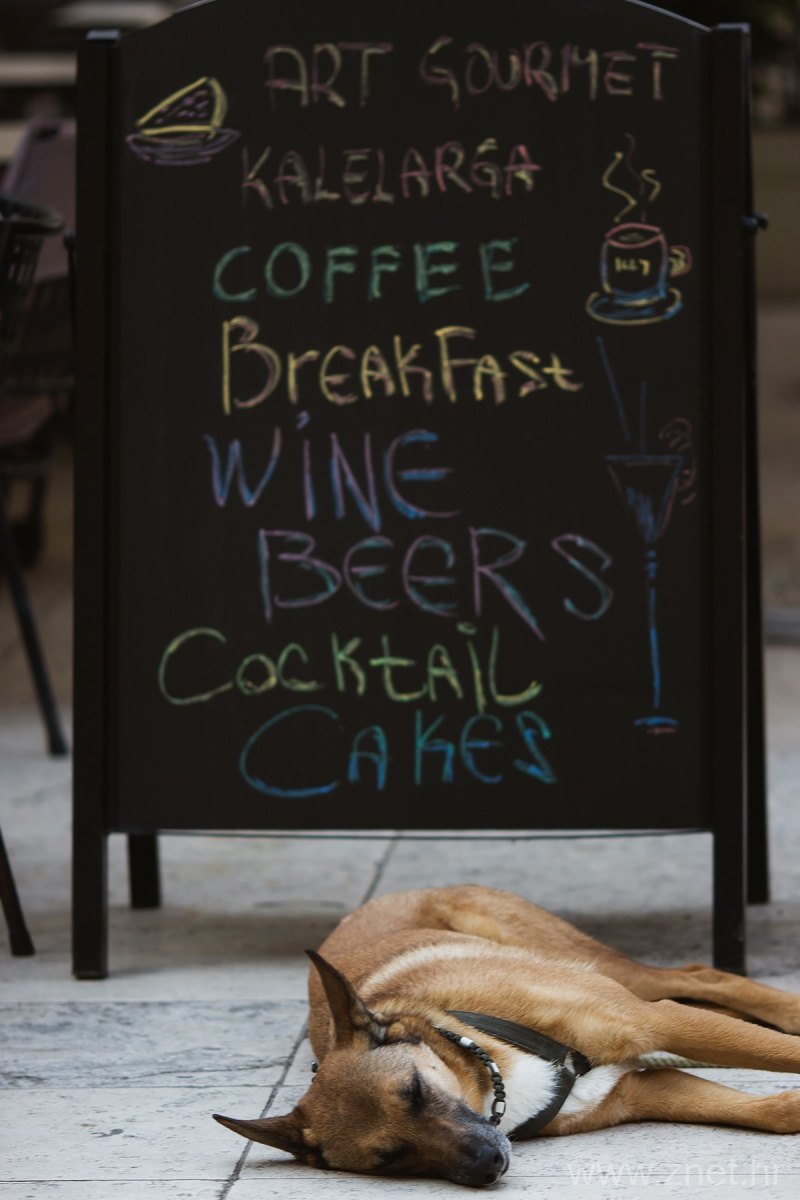 ART GOURMET
KALELARGA
COFFEE
BreakFast
WiNE
BEERS
CocktAiL
CAKES
www.znet.hr